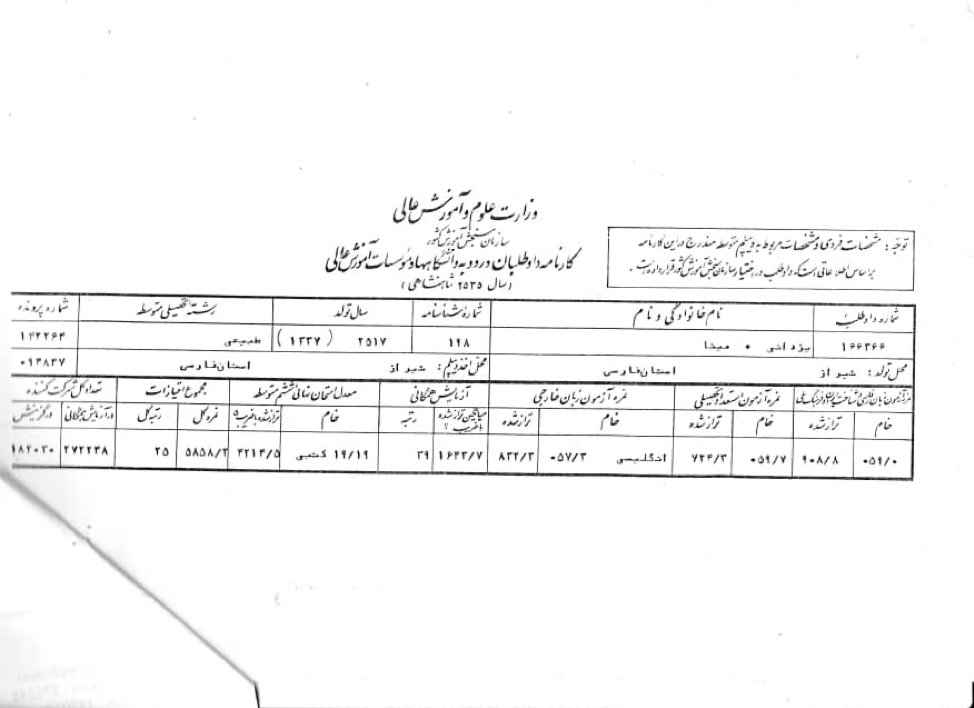 وزارت علوم و آموزش عالی
سازمان سنجش آموزش کشور
کارنامه داوطلبان ورود به دانشگاهها و مؤسسات آموزش عالی
(سال ۲۵۳۵ شاهنشاهی)
توجه : مشخصات فردی و مشخصات مربوط به دیپلم متوسطه مندرج در این کارنامه
بر اساس اطلاعاتی است که داوطلب در اختیار سازمان سنجش آموزش کشور قرار داده است .
شماره داوطلب نام خانوادگی و نام شماره شناسنامه سال تولد رشته تحصیلی متوسطه شماره پرونده
۱۶۶۳۶۶ یزدانی • مینا ۱۱۸ ۲۵۱۷ (۱۳۳۷) طبیعی ۱۴۲۲۶۴
محل تولد : شیراز استان فارس محل اخذ دیپلم : شیراز استان فارس ۰۹۳۸۳۷
نمره آزمون استعداد تحصیلی نمره آزمون زبان خارجی آزمایش همگانی معدل امتحان نهائی ششم متوسطه مجموع امتیازات تعداد کل شرکت کننده
خام تراز شده خام تراز شده خام تراز شده میانگین تراز شده با ضریب ۲ رتبه خام تراز شده با ضریب ۵ نمره کل رتبه کل در آزمایش همگانی در گزینش
۰۵۹/۰ ۹۰۸/۸ ۰۵۹/۷ ۷۲۴/۳ انگلیسی ۰۵۷/۳ ۸۳۲/۳ ۱۶۴۳/۷ ۳۹ ۱۹/۱۹ کتبی ۴۲۱۴/۵ ۵۸۵۸/۲ ۲۵ ۲۷۲۲۳۸ ۱۸۲۰۳۰